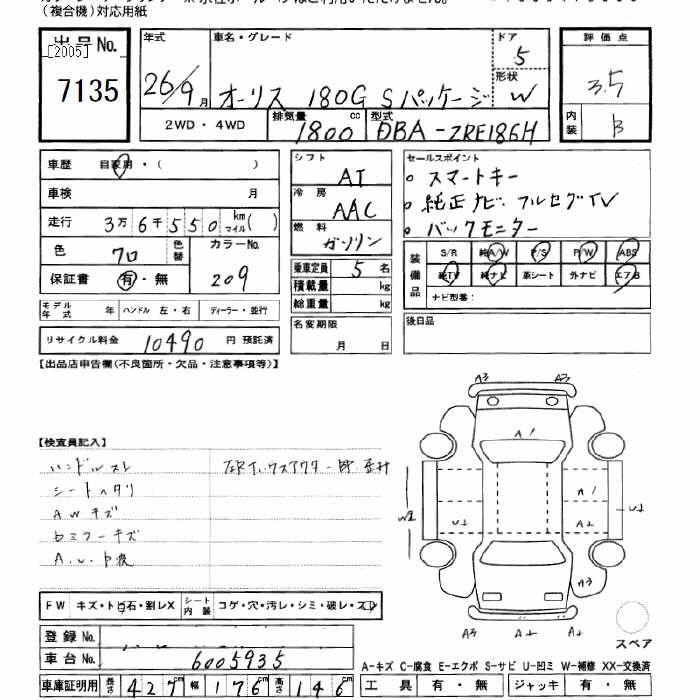 (複合機)対応用紙
出品No.
[2005]
7135
年式 26/9月
車名・グレード オーリス 180G Sパッケージ
ドア 5
形状 W
2WD・4WD
排気量 1800 cc
型式 DBA-ZRE186H
評価点 3.5
内装 B
車歴 自家用・( )
車検 月
走行 3万6千550 km マイル( )
色 クロ 色替
カラーNo. 209
保証書 有・無
モデル年式 年 ハンドル 左・右 ディーラー・並行
リサイクル料金 10490 円 預託済
シフト AT
冷房 AAC
燃料 ガソリン
乗車定員 5 名
積載量 kg
総重量 kg
名変期限
月 日
セールスポイント
○ スマートキー
○ 純正ナビ フルセグTV
○ バックモニター
装備品 S/R 純A/W P/S P/W ABS
純TV 純ナビ 革シート 外ナビ エアB
ナビ型番:
後日品
【出品店申告欄(不良箇所・欠品・注意事項等)】
【検査員記入】
ハンドルスレ
シートヘタリ
AWキズ
ドミラーキズ
FW キズ・トビ石・割レX
シート内装 コゲ・穴・汚レ・シミ・破レ・スレ
登録No.
車台No. 6005935
車庫証明用 長さ 427cm 幅 176cm 高さ 146cm
A3 A3
A1
A1
W2 U1 A2 U1
A3
A2 A2
スペア
A-キズ C-腐食 E-エクボ S-サビ U-凹ミ W-補修 XX-交換済
工具 有・無 ジャッキ 有・無